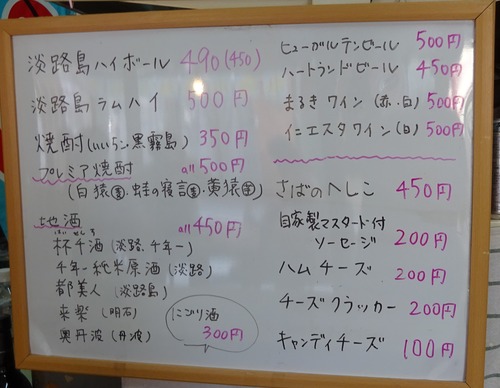 淡路島ハイボール 490(450)
淡路島ラムハイ 500円
焼酎(いいちこ・黒霧島) 350円
プレミア焼酎 all500円
(白猿麦・蛙の寝言麦・黄猿芋)
地酒 all450円
杯千酒(淡路、千年一)
千年一純米原酒(淡路)
都美人(淡路島)
来楽(明石)
奥丹波(丹波)
にごり酒
300円
ヒューガルデンビール 500円
ハートランドビール 450円
まるき ワイン(赤・白) 500円
仁エスタワイン(白) 500円
さばのへしこ 450円
自家製マスタード付
ソーセージ 200円
ハムチーズ 200円
チーズクラッカー 200円
キャンディチーズ 100円